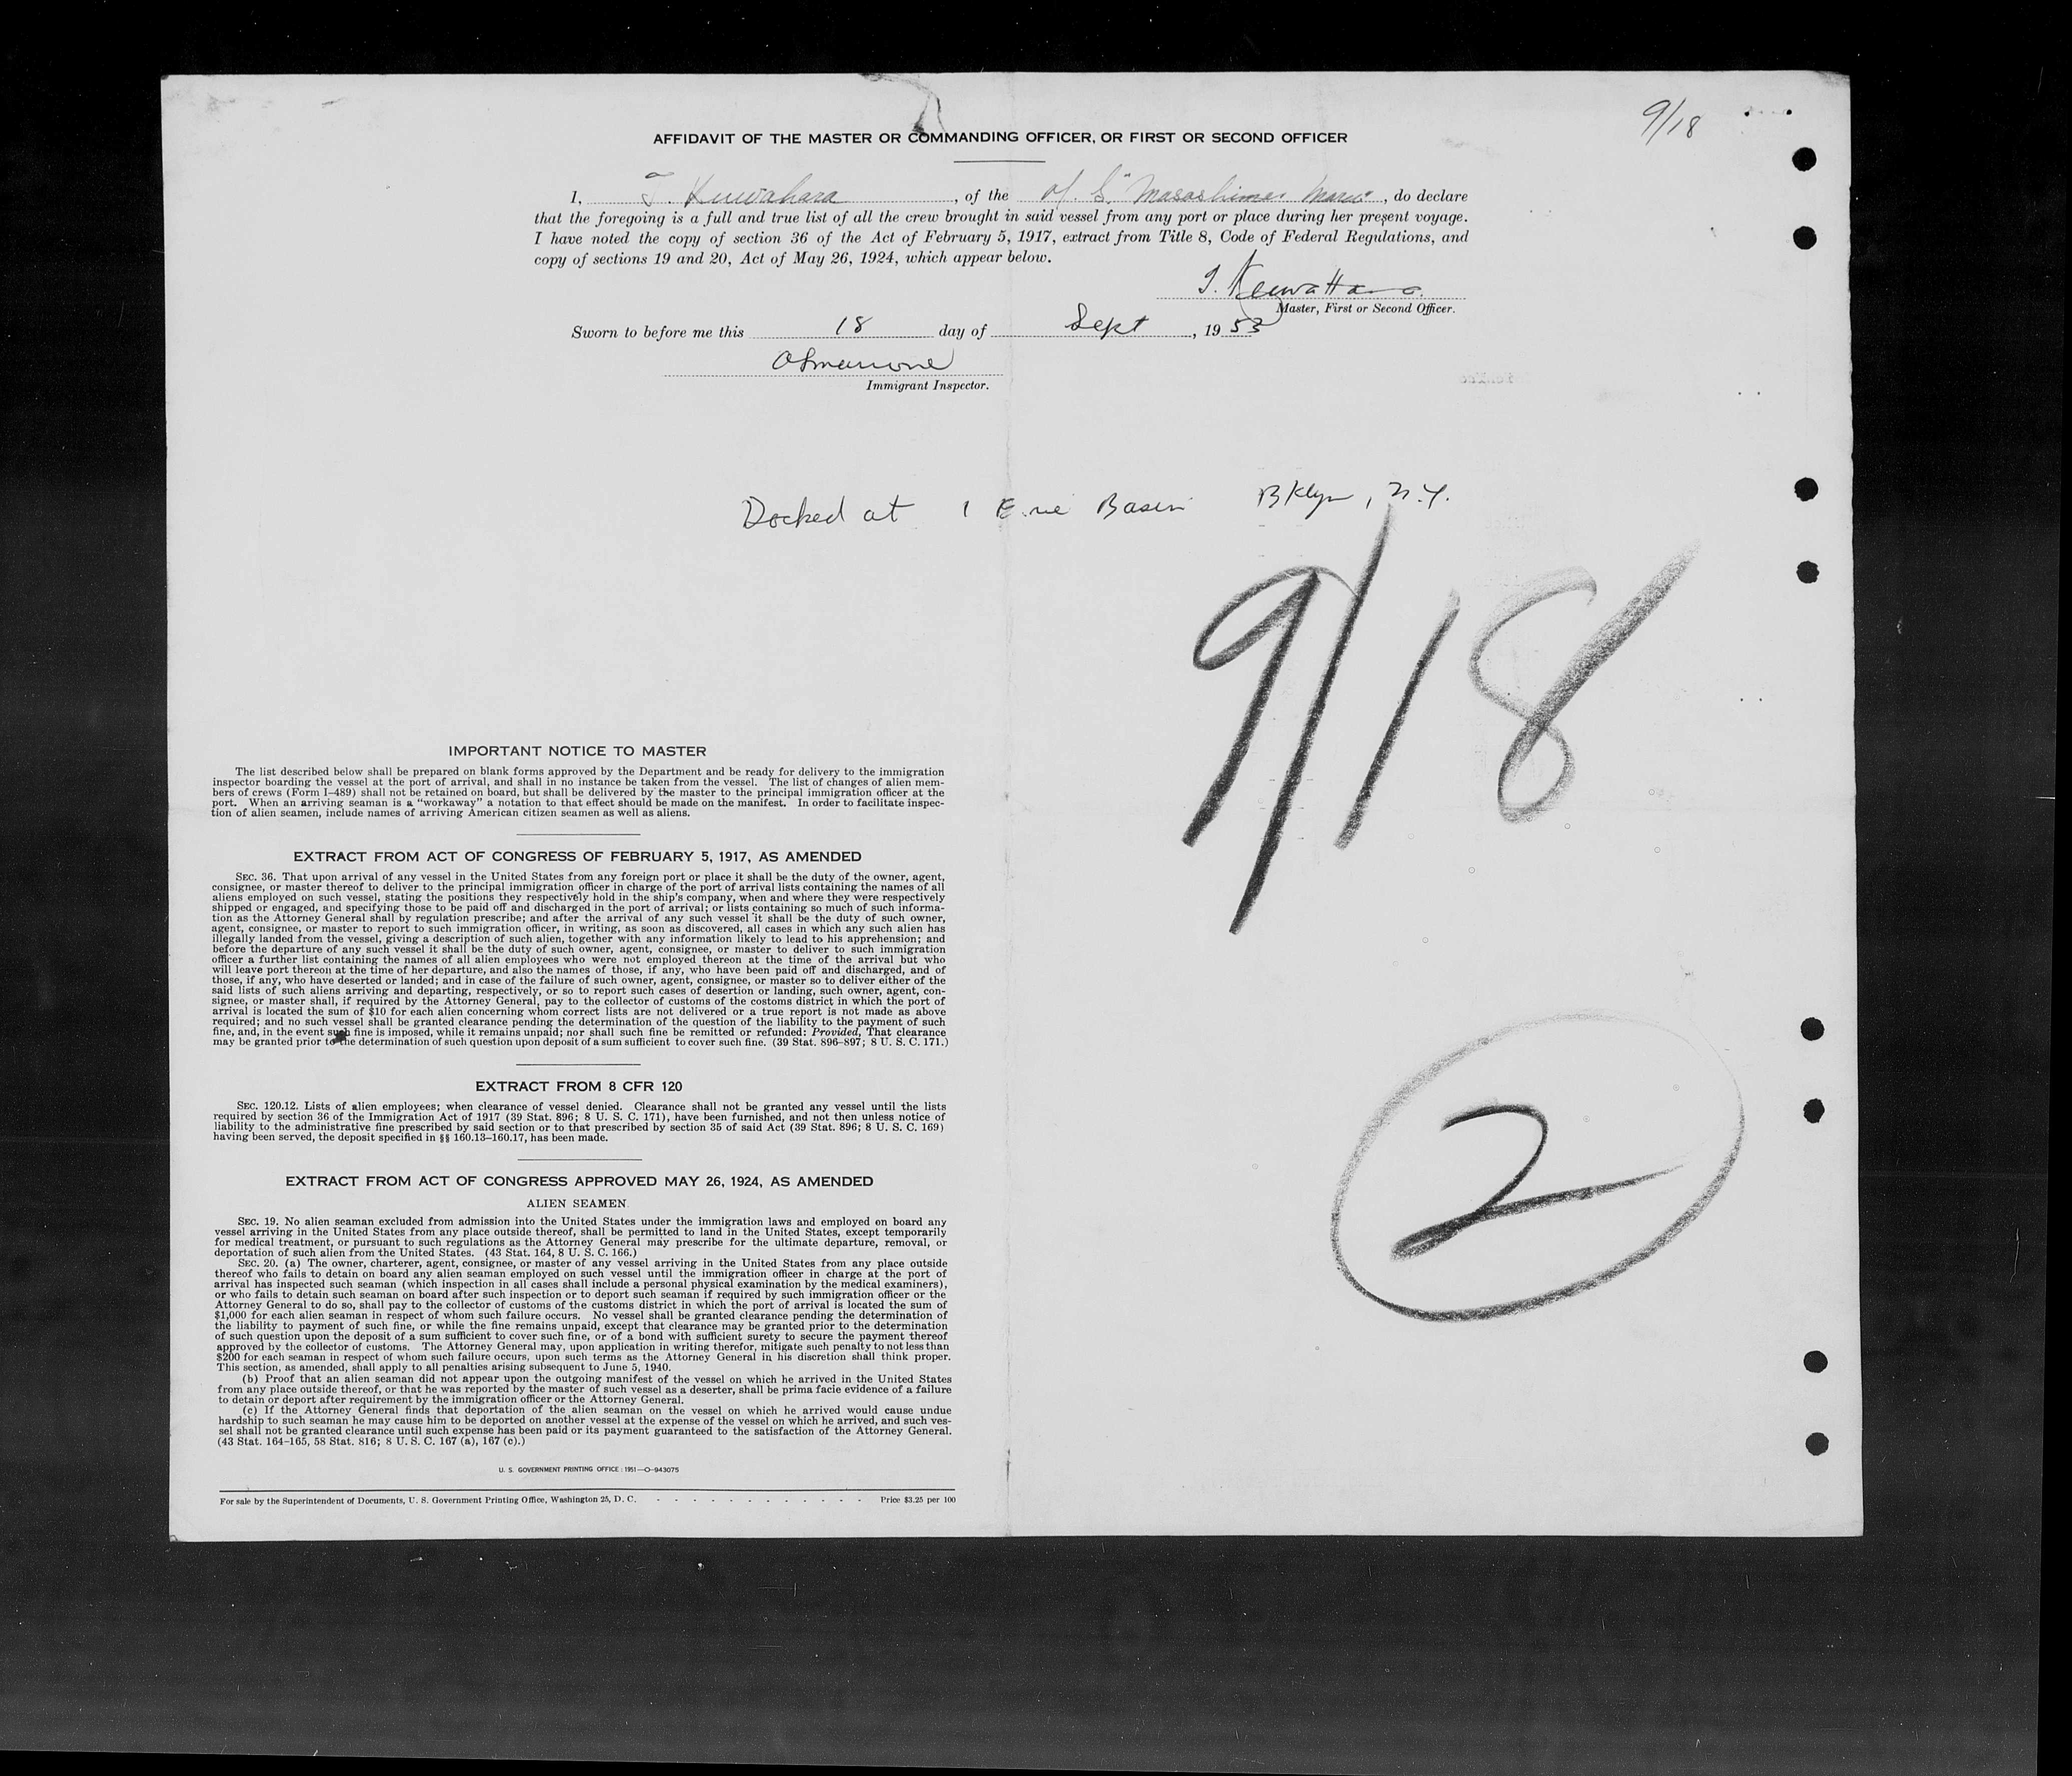 9/18
AFFIDAVIT OF THE MASTER OR COMMANDING OFFICER, OR FIRST OR SECOND OFFICER
I, T. Kuwahara, of the M. S. "Masashima Maru", do declare
that the foregoing is a full and true list of all the crew brought in said vessel from any port or place during her present voyage.
I have noted the copy of section 36 of the Act of February 5, 1917, extract from Title 8, Code of Federal Regulations, and
copy of sections 19 and 20, Act of May 26, 1924, which appear below.
T. Kuwahara
Master, First or Second Officer.
Sworn to before me this 18 day of Sept, 19 53
Immigrant Inspector.
Docked at 1 Erie Basin Bklyn, N.Y.
9/18
2
IMPORTANT NOTICE TO MASTER
The list described below shall be prepared on blank forms approved by the Department and be ready for delivery to the immigration
inspector boarding the vessel at the port of arrival, and shall in no instance be taken from the vessel. The list of changes of alien mem-
bers of crews (Form I–489) shall not be retained on board, but shall be delivered by the master to the principal immigration officer at the
port. When an arriving seaman is a "workaway" a notation to that effect should be made on the manifest. In order to facilitate inspec-
tion of alien seamen, include names of arriving American citizen seamen as well as aliens.
EXTRACT FROM ACT OF CONGRESS OF FEBRUARY 5, 1917, AS AMENDED
SEC. 36. That upon arrival of any vessel in the United States from any foreign port or place it shall be the duty of the owner, agent,
consignee, or master thereof to deliver to the principal immigration officer in charge of the port of arrival lists containing the names of all
aliens employed on such vessel, stating the positions they respectively hold in the ship's company, when and where they were respectively
shipped or engaged, and specifying those to be paid off and discharged in the port of arrival; or lists containing so much of such informa-
tion as the Attorney General shall by regulation prescribe; and after the arrival of any such vessel it shall be the duty of such owner,
agent, consignee, or master to report to such immigration officer, in writing, as soon as discovered, all cases in which any such alien has
illegally landed from the vessel, giving a description of such alien, together with any information likely to lead to his apprehension; and
before the departure of any such vessel it shall be the duty of such owner, agent, consignee, or master to deliver to such immigration
officer a further list containing the names of all alien employees who were not employed thereon at the time of the arrival but who
will leave port thereon at the time of her departure, and also the names of those, if any, who have been paid off and discharged, and of
those, if any, who have deserted or landed; and in case of the failure of such owner, agent, consignee, or master so to deliver either of the
said lists of such aliens arriving and departing, respectively, or so to report such cases of desertion or landing, such owner, agent, con-
signee, or master shall, if required by the Attorney General, pay to the collector of customs of the costoms district in which the port of
arrival is located the sum of $10 for each alien concerning whom correct lists are not delivered or a true report is not made as above
required; and no such vessel shall be granted clearance pending the determination of the question of the liability to the payment of such
fine, and, in the event such fine is imposed, while it remains unpaid; nor shall such fine be remitted or refunded: Provided, That clearance
may be granted prior to the determination of such question upon deposit of a sum sufficient to cover such fine. (39 Stat. 896–897; 8 U. S. C. 171.)
EXTRACT FROM 8 CFR 120
SEC. 120.12. Lists of alien employees; when clearance of vessel denied. Clearance shall not be granted any vessel until the lists
required by section 36 of the Immigration Act of 1917 (39 Stat. 896; 8 U. S. C. 171), have been furnished, and not then unless notice of
liability to the administrative fine prescribed by said section or to that prescribed by section 35 of said Act (39 Stat. 896; 8 U. S. C. 169)
having been served, the deposit specified in §§ 160.13–160.17, has been made.
EXTRACT FROM ACT OF CONGRESS APPROVED MAY 26, 1924, AS AMENDED
ALIEN SEAMEN
SEC. 19. No alien seaman excluded from admission into the United States under the immigration laws and employed on board any
vessel arriving in the United States from any place outside thereof, shall be permitted to land in the United States, except temporarily
for medical treatment, or pursuant to such regulations as the Attorney General may prescribe for the ultimate departure, removal, or
deportation of such alien from the United States. (43 Stat. 164, 8 U. S. C. 166.)
SEC. 20. (a) The owner, charterer, agent, consignee, or master of any vessel arriving in the United States from any place outside
thereof who fails to detain on board any alien seaman employed on such vessel until the immigration officer in charge at the port of
arrival has inspected such seaman (which inspection in all cases shall include a personal physical examination by the medical examiners),
or who fails to detain such seaman on board after such inspection or to deport such seaman if required by such immigration officer or the
Attorney General to do so, shall pay to the collector of customs of the customs district in which the port of arrival is located the sum of
$1,000 for each alien seaman in respect of whom such failure occurs. No vessel shall be granted clearance pending the determination of
the liability to payment of such fine, or while the fine remains unpaid, except that clearance may be granted prior to the determination
of such question upon the deposit of a sum sufficient to cover such fine, or of a bond with sufficient surety to secure the payment thereof
approved by the collector of customs. The Attorney General may, upon application in writing therefor, mitigate such penalty to not less than
$200 for each seaman in respect of whom such failure occurs, upon such terms as the Attorney General in his discretion shall think proper.
This section, as amended, shall apply to all penalties arising subsequent to June 5, 1940.
(b) Proof that an alien seaman did not appear upon the outgoing manifest of the vessel on which he arrived in the United States
from any place outside thereof, or that he was reported by the master of such vessel as a deserter, shall be prima facie evidence of a failure
to detain or deport after requirement by the immigration officer or the Attorney General.
(c) If the Attorney General finds that deportation of the alien seaman on the vessel on which he arrived would cause undue
hardship to such seaman he may cause him to be deported on another vessel at the expense of the vessel on which he arrived, and such ves-
sel shall not be granted clearance until such expense has been paid or its payment guaranteed to the satisfaction of the Attorney General.
(43 Stat. 164–165, 58 Stat. 816; 8 U. S. C. 167 (a), 167 (c).)
U. S. GOVERNMENT PRINTING OFFICE : 1951—O–943075
For sale by the Superintendent of Documents, U. S. Government Printing Office, Washington 25, D. C. - - - - - - - - - - - - Price $3.25 per 100